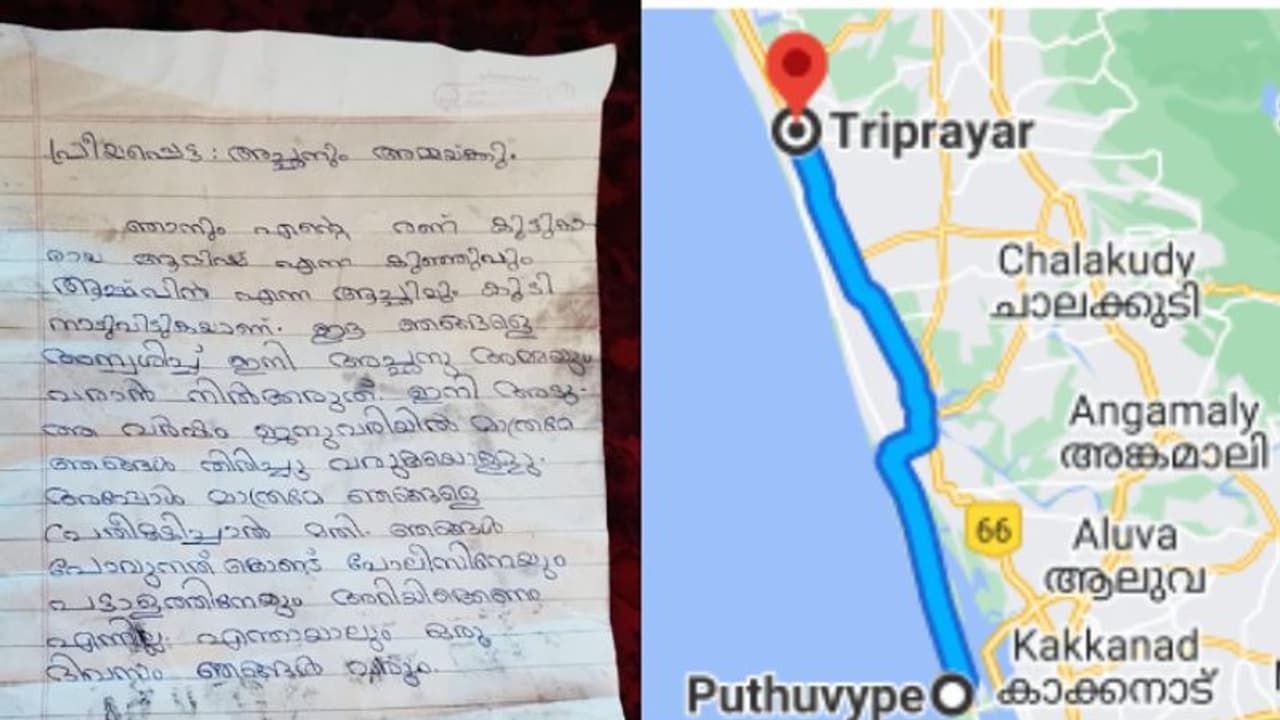 പ്രീയപ്പെട്ട : അച്ഛനും അമ്മയ്ക്കും.
ഞാനും എന്റെ രണ്ട് കൂട്ടുകാ-
രായ ആദിഷ് എന്ന കുഞ്ഞുവും
എന്ന ആച്ചിയും കൂടി
നാടുവിടുകയാണ്. ഇത് ഞങ്ങളെ
അന്വേശിച്ച് ഇനി അച്ഛനും അമ്മയും
വരാൻ നിൽക്കരുത്. ഇനി അടു-
ത്ത വർഷം ജനുവരിയിൽ മാത്രമേ
ഞങ്ങൾ തിരിച്ചു വരുകയൊള്ളു.
അപ്പോൾ മാത്രമേ ഞങ്ങളെ
പ്രതീക്ഷിച്ചാൽ മതി. ഞങ്ങൾ
പോവുന്നത് കൊണ്ട് പോലിസിനേയും
പട്ടാളത്തിനേയും അറിയിക്കണം
എന്നില്ല. എന്തായാലും ഒരു
ദിവസം ഞങ്ങൾ വരും.
Triprayar
Chalakudy
ചാലക്കുടി
Angamaly
അങ്കമാലി
66
Aluva
ആലുവ
Kakkanad
കാക്കനാട്
Puthuvype